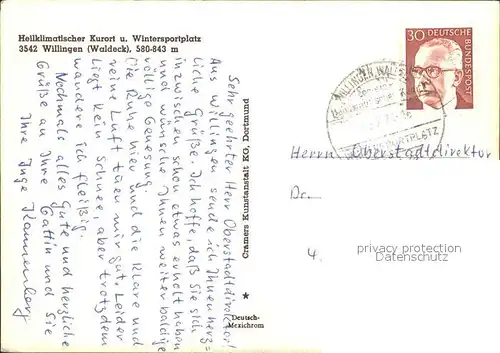 Heilklimatischer Kurort u. Wintersportplatz
3542 Willingen (Waldeck), 580-843 m
Sehr geehrter Herr Oberstadtdirektor!
Aus Willingen sende ich Ihnen herz=
liche Grüße. Ich hoffe, daß Sie sich
inzwischen schon etwas erholt haben
und wünsche Ihnen weiter baldige
völlige Genesung.
Die Ruhe hier und die klare und
reine Luft tuen mir gut. Leider
liegt kein Schnee, aber trotzdem
wandere ich fleißig.
Nochmals alles Gute und herzliche
Grüße an Ihre Gattin und Sie
Ihre Inge Kannenberg
Cramers Kunstanstalt KG, Dortmund
Deutsch-
Mexichrom
30 DEUTSCHE
BUNDESPOST
WILLINGEN
Herrn Oberstadtdirektor
Dr.
4.
privacy protection
Datenschutz